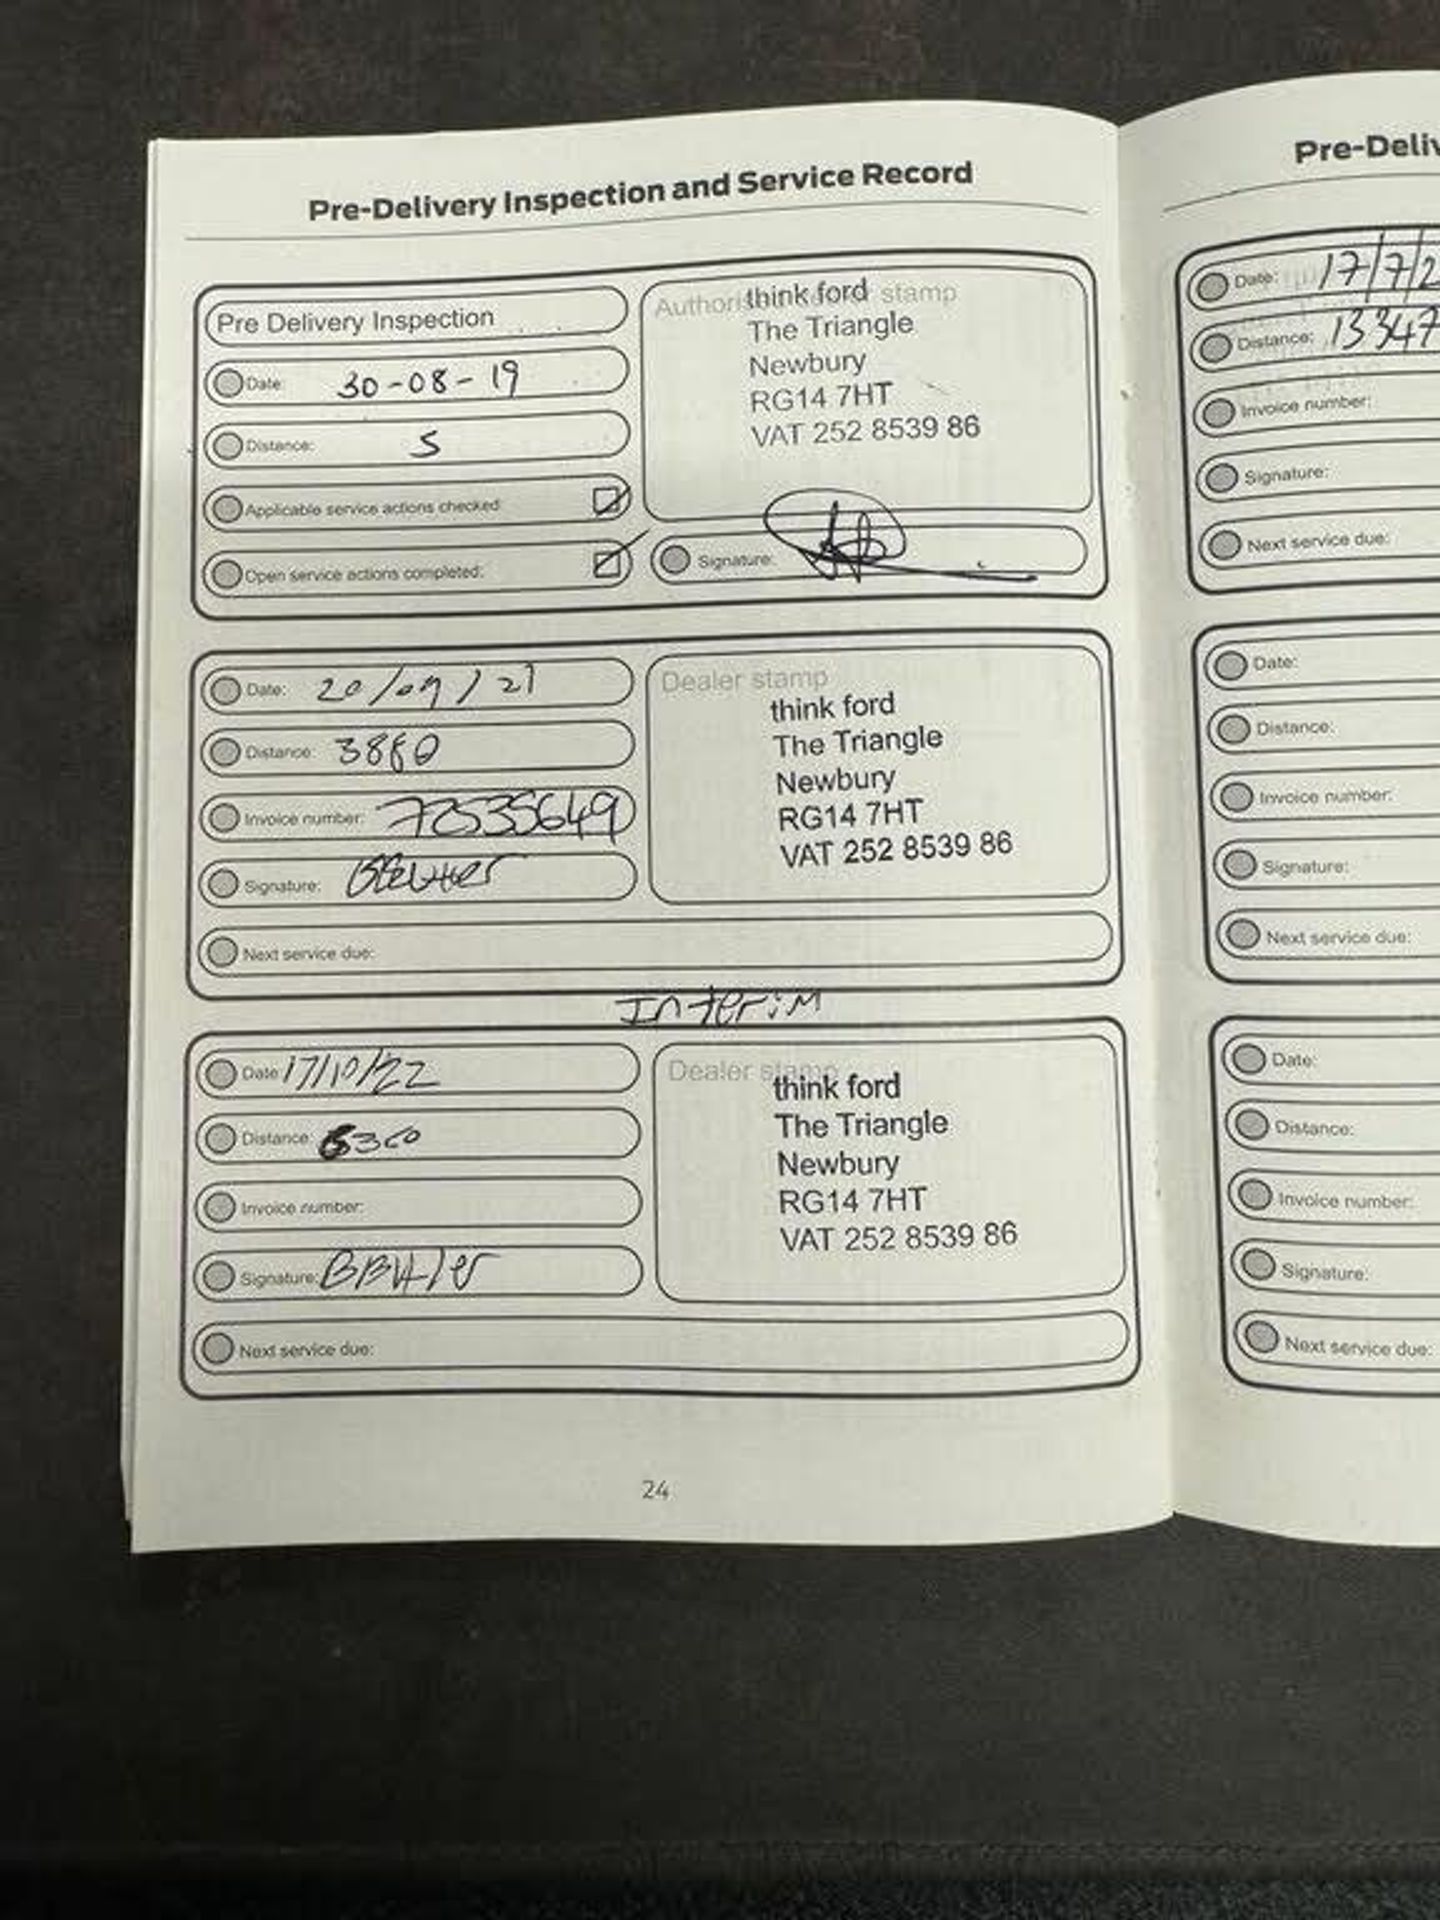 Pre-Delivery Inspection and Service Record
Pre Delivery Inspection
Date: 30-08-19
Distance: 5
Applicable service actions checked
Open service actions completed:
stamp
think ford
The Triangle
Newbury
RG14 7HT
VAT 252 8539 86
Signature:
Date: 20/09/21
Distance: 3880
Invoice number: 70535649
Signature:
Next service due:
Dealer stamp
think ford
The Triangle
Newbury
RG14 7HT
VAT 252 8539 86
Interim
Date: 17/10/22
Distance: 6360
Invoice number:
Signature: BButler
Next service due:
Dealer stamp
think ford
The Triangle
Newbury
RG14 7HT
VAT 252 8539 86
24
Pre-Deliv
Date: 17/7/2
Distance: 13347
Invoice number:
Signature:
Next service due:
Date:
Distance:
Invoice number:
Signature:
Next service due:
Date:
Distance:
Invoice number:
Signature:
Next service due: